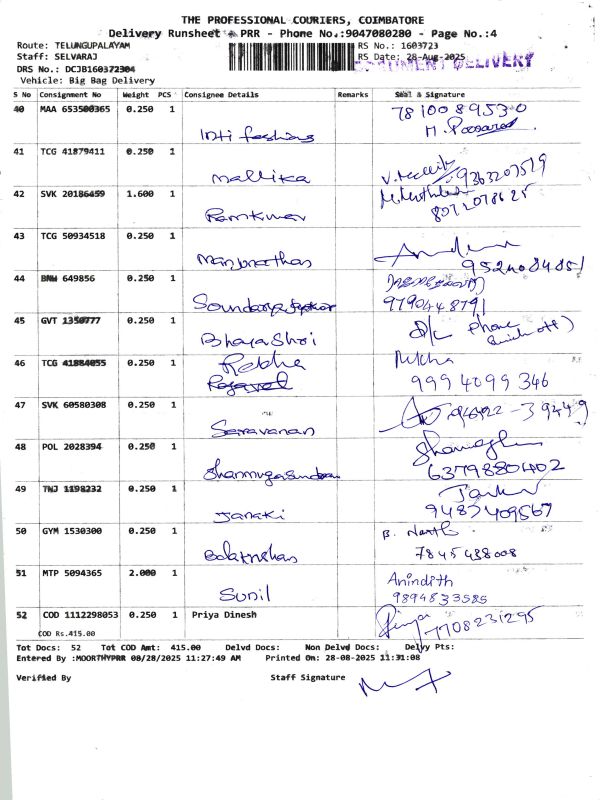 THE PROFESSIONAL COURIERS, COIMBATORE
Delivery Runsheet - PRR - Phone No.:9047080280 - Page No.:4
Route: TELUNGUPALAYAM
RS No.: 1603723
Staff: SELVARAJ
RS Date: 28-Aug-2025
DELIVERY
DRS No.: DCJB160372304
Vehicle: Big Bag Delivery
S No Consignment No Weight PCS Consignee Details Remarks Seal & Signature
40 MAA 653500365 0.250 1 7810089530
Inti fashions
41 TCG 41879411 0.250 1
Mallika 9363207519
42 SVK 20186459 1.600 1
Ramkumar 8072078625
43 TCG 50934518 0.250 1
Manjunathan 9524084851
44 BNW 649856 0.250 1
Soundarya 9790448791
45 GVT 1350777 0.250 1 D/L Phone
BhagaShri Switch off)
46 TCG 41884055 0.250 1 Rekha Rekha
9994099346
47 SVK 60580308 0.250 1
Saravanan 39449
48 POL 2028394 0.250 1
Shanmugasundaram 6379880402
49 TNJ 1198232 0.250 1
Janaki 9487409567
50 GYM 1530300 0.250 1
7845438008
51 MTP 5094365 2.000 1 Anindith
Sunil 9894833585
52 COD 1112298053 0.250 1 Priya Dinesh Priya
COD Rs.415.00 7708231295
Tot Docs: 52 Tot COD Amt: 415.00 Delvd Docs: Non Delvd Docs: Delvy Pts:
Entered By :MOORTHYPRR 08/28/2025 11:27:49 AM Printed On: 28-08-2025 11:31:08
Verified By Staff Signature